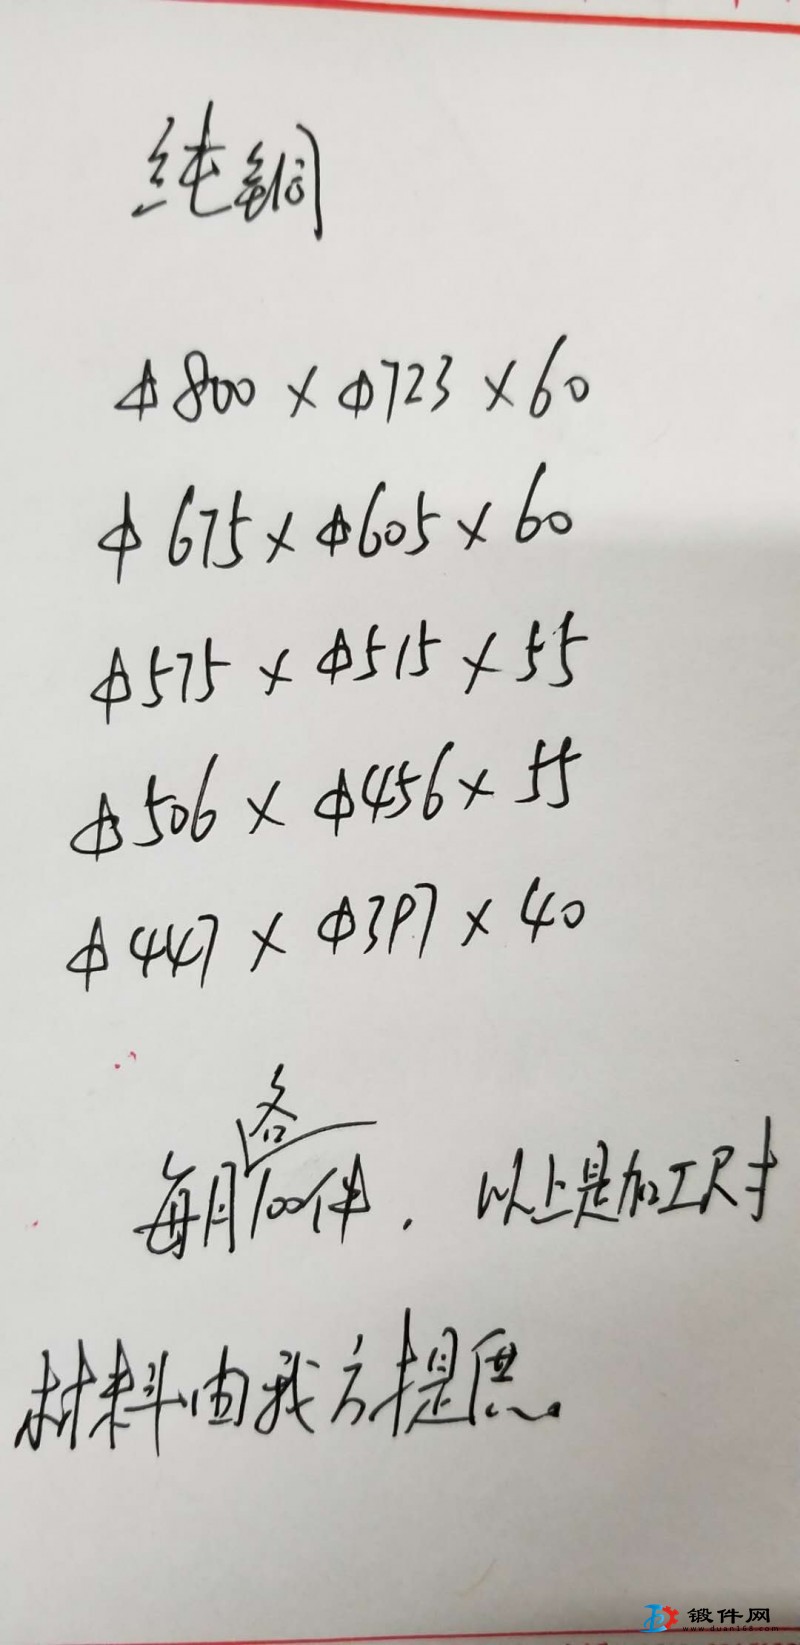 纯铜
Φ800×Φ723×60
Φ675×Φ605×60
Φ575×Φ515×55
Φ506×Φ456×55
Φ447×Φ397×40
每月各100件. 以上是加工尺寸
材料由我方提
锻件网
www.duan168.com